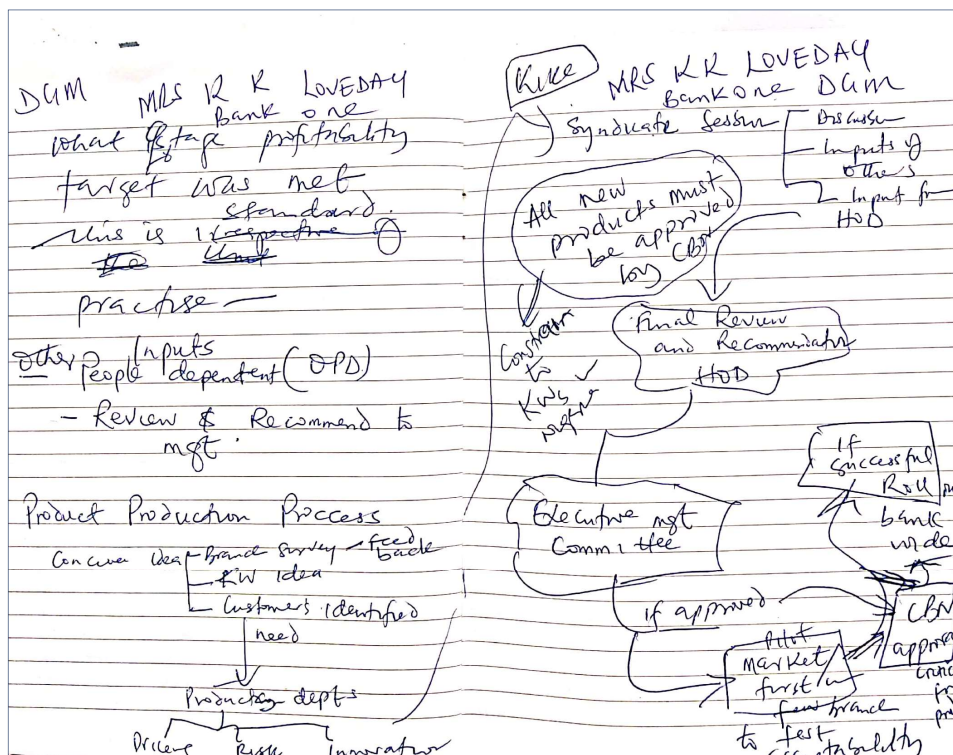 DGM MRS R K LOVEDAY
Bank one
what %tage profitability
target was met
standard.
This is irrespective of
the
practise —
Other Inputs
people dependent (OPD)
- Review & Recommend to
mgt.
Product Production Proccess
Conceive idea - Branch survey - feed back
- KW idea
- Customers identified
need
Production depts
Risk Innovation
Kike
MRS KK LOVEDAY
Bank one DGM
Syndicate Session
Discussion
- Inputs of
others
Input from
HOD
All new
products must
be approved
by CBN
Constraint
to
KWs
Final Review
and Recommendation
HOD
Executive mgt
Committee
If approved
Pilot
market
first in
few branch
to test
If
successful
Roll
bank
wide
CBN
approval